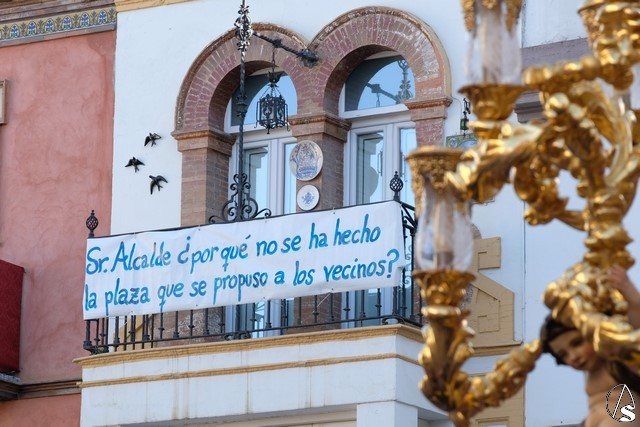 Sr. Alcalde ¿por qué no se ha hecho
la plaza que se propuso a los vecinos?